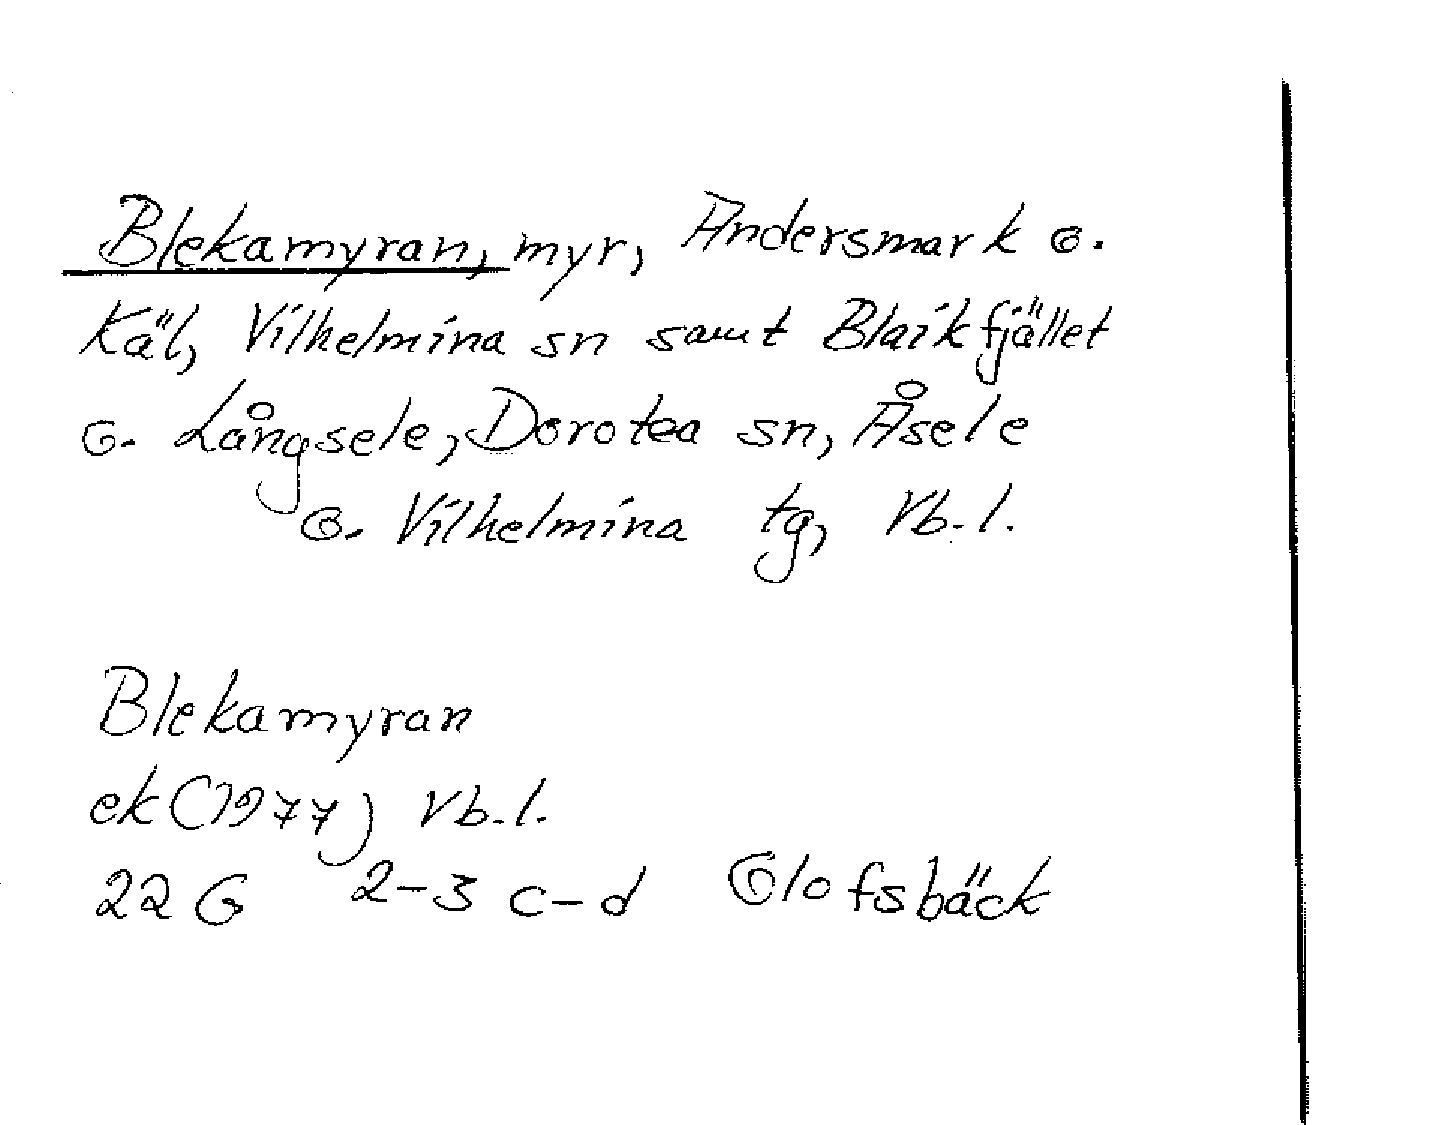 Blekamyran, myr, Andersmark o.
Käl, Vilhelmina sn samt Blaikfjället
o. Långsele, Dorotea sn, Åsele
o. Vilhelmina tg, Vb.l.
Blekamyran
ek (1977) Vb.l.
22 G 2-3 c-d Olofsbäck